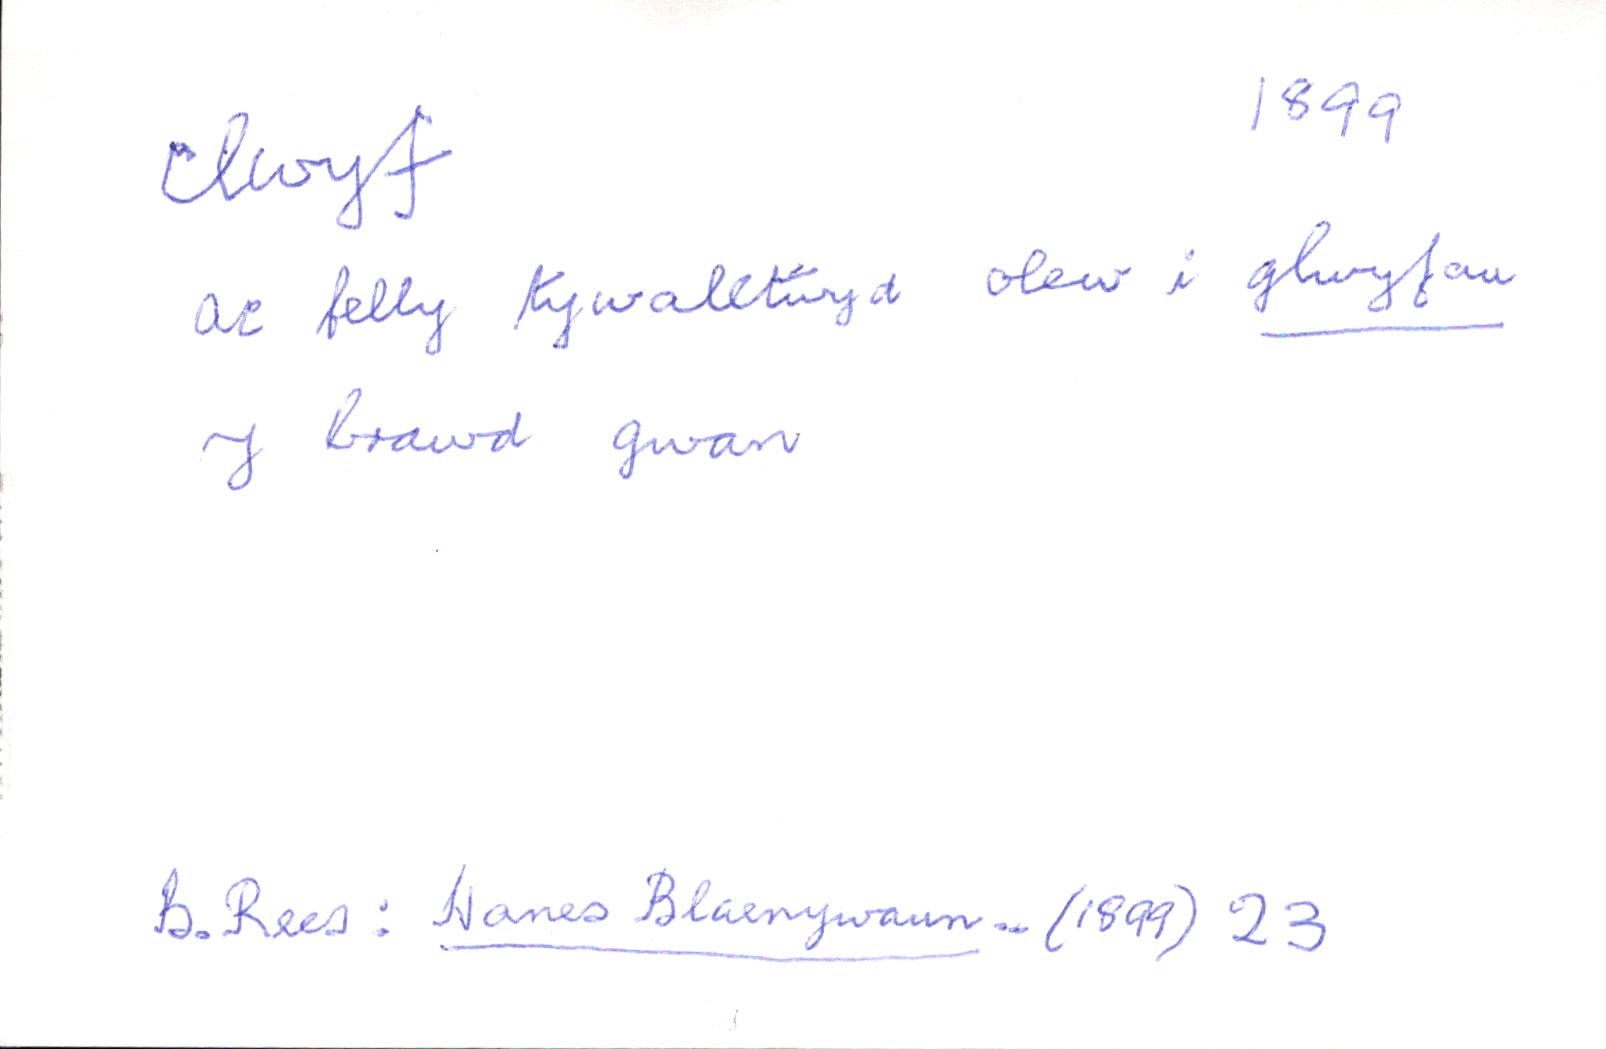 clwyf 1899
ac felly tywalltwyd olew i glwyfau
y brawd gwan
B. Rees: Hanes Blaenywaun .. (1899) 23